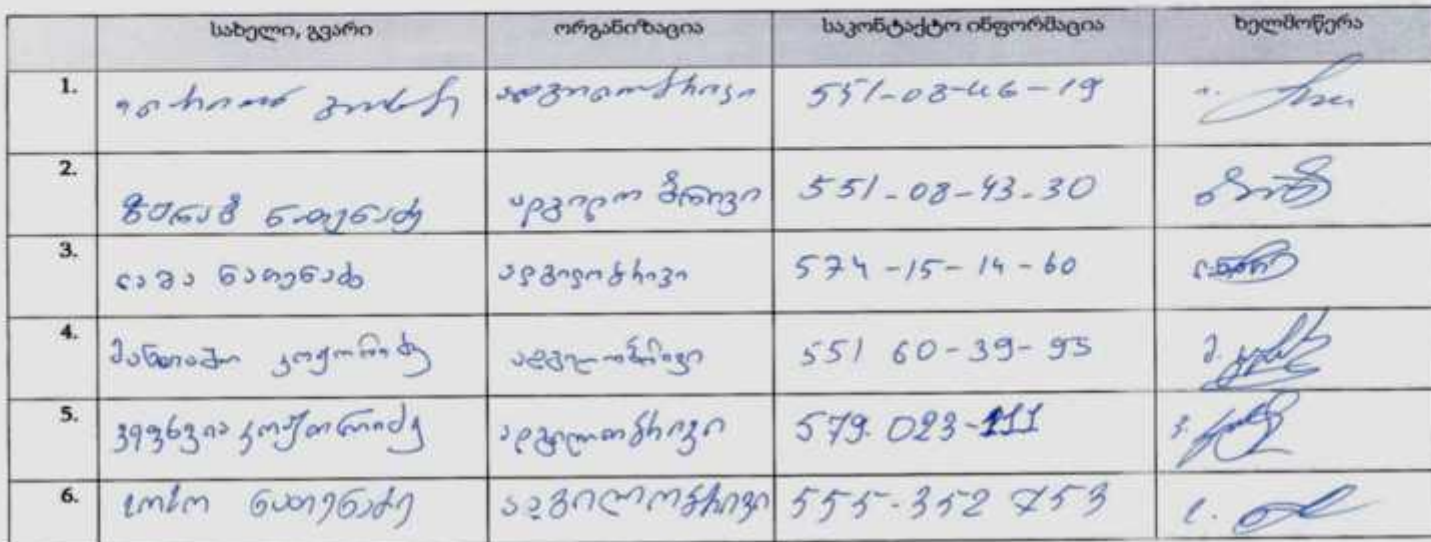 სახელი, გვარი ორგანიზაცია საკონტაქტო ინფორმაცია ხელმოწერა
1. ადგილობრივი 551-08-46-19
2. ზურაბ ნათენაძე ადგილობრივი 551-08-43-30
3. ლაშა ნათენაძე ადგილობრივი 574-15-14-60
4. კოჟორიძე ადგილობრივი 551 60-39-95
5. კოჟორიძე ადგილობრივი 579.023-111
6. სოსო ნათენაძე ადგილობრივი 555-352 753